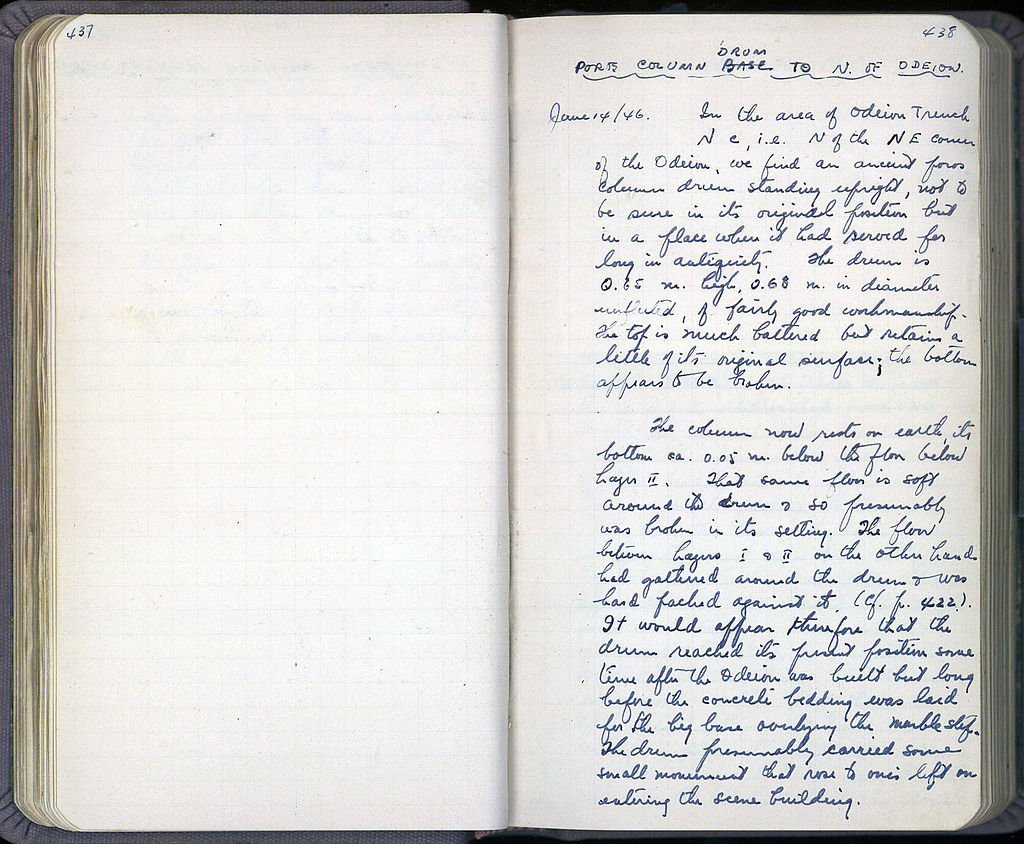 437
438
DRUM
POROS COLUMN BASE TO N. OF ODEION.
June 14/46. In the area of Odeion Trench
N C, i.e. N of the NE corner
of the Odeion, we find an ancient poros
column drum standing upright, not to
be sure in its original position but
in a place where it had served for
long in antiquity. The drum is
0.65 m. high, 0.68 m. in diameter
unfluted, of fairly good workmanship.
The top is much battered but retains a
little of its original surface; the bottom
appears to be broken.
The column now rests on earth, its
bottom ca. 0.05 m. below the floor below
Layer II. That same floor is soft
around the drum & so presumably
was broken in its setting. The floor
between Layers I & II on the other hand
had gathered around the drum & was
hard packed against it. (Cf. p. 422).
It would appear therefore that the
drum reached its present position some
time after the Odeion was built but long
before the concrete bedding was laid
for the big base overlying the marble step.
The drum presumably carried some
small monument that rose to one's left on
entering the scene building.